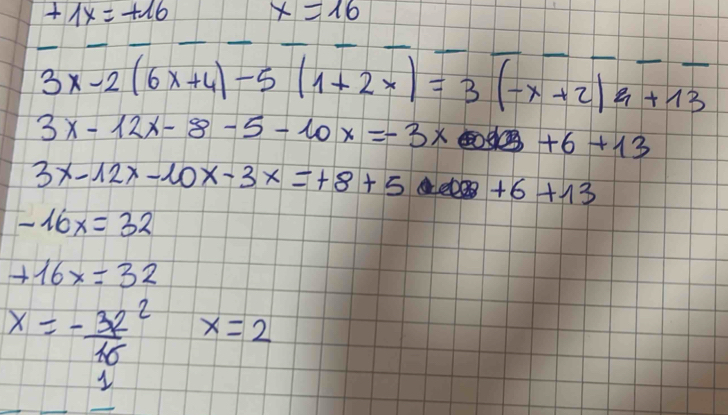 +1x=+16 x=16
3x-2(6x+4)-5(1+2x)=3(-x+2)+13
3x-12x-8-5-10x=-3x+6+13
3x-12x-10x-3x=+8+5+6+13
-16x=32
+16x=32
x=-32/16 2 1 x=2